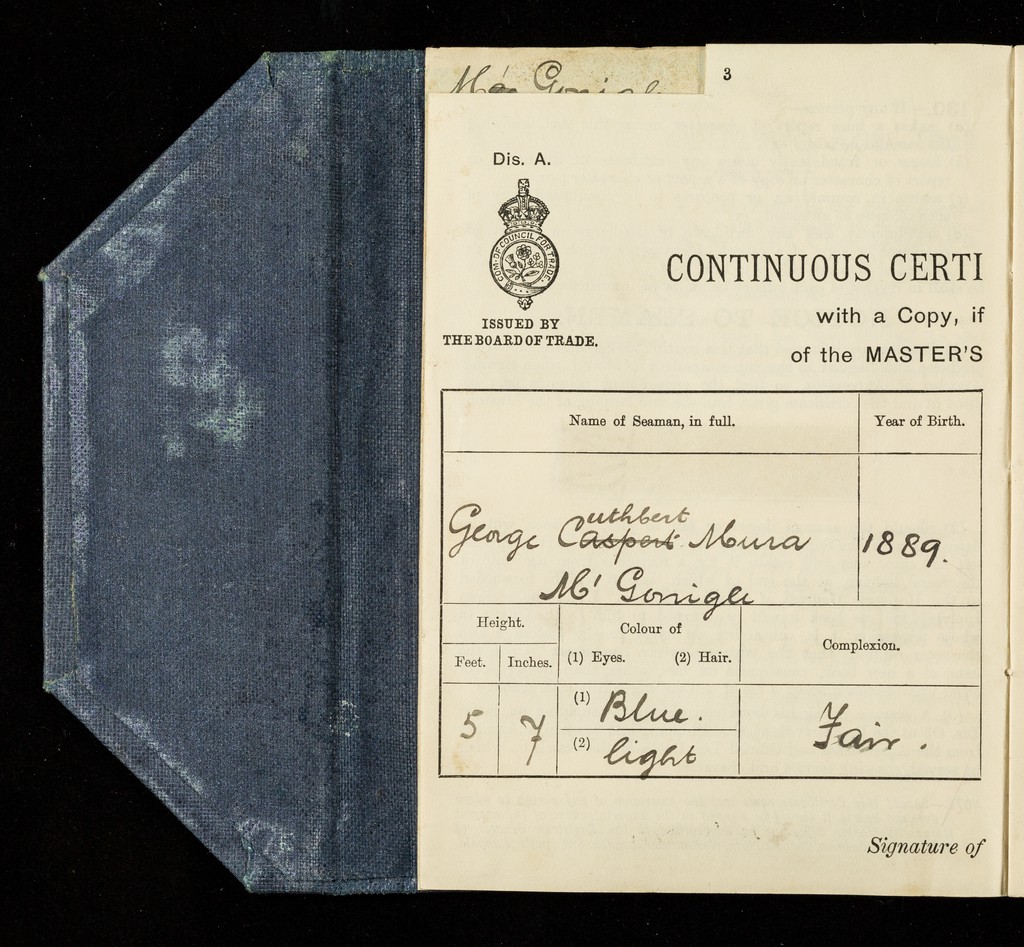 Mc Gonigle
3
Dis. A.
COM. OF COUNCIL FOR TRADE
ISSUED BY
THE BOARD OF TRADE.
CONTINUOUS CERTI
with a Copy, if
of the MASTER'S
Name of Seaman, in full.
Year of Birth.
uthbert
George Caspert Mura
1889.
Mc Gonigle
Height.
Colour of
Complexion.
Feet. Inches. (1) Eyes. (2) Hair.
5 7
(1) Blue.
(2) light
Fair.
Signature of